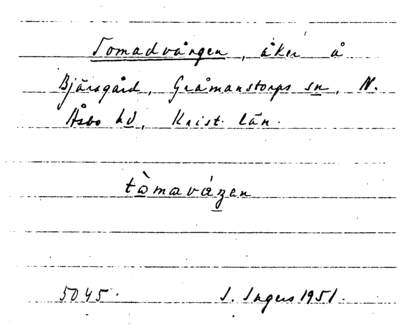 Tomadvången, åker å
Bjärsgård, Gråmanstorps sn, N.
Åsbo hd, Krist. län.
tòmaváŋen
5045. I. Ingers 1951.